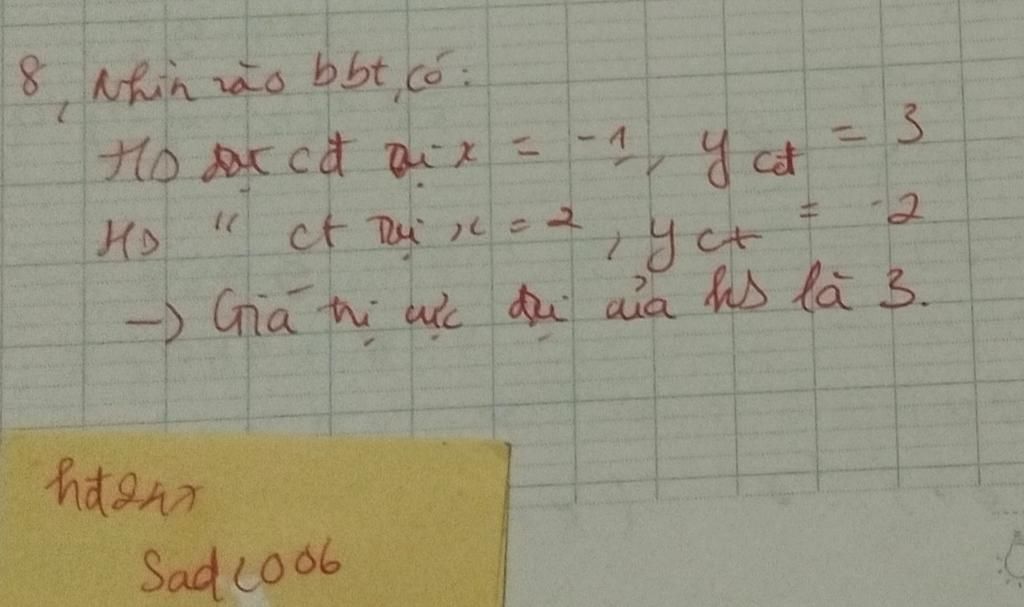 8, Nhìn vào bbt, có:
HS đạt cđ tại x = -1, y cđ = 3
HS " ct tại x = 2, y ct = -2
→ Giá trị cực đại của hs là 3.
hd2nr
Sad<006